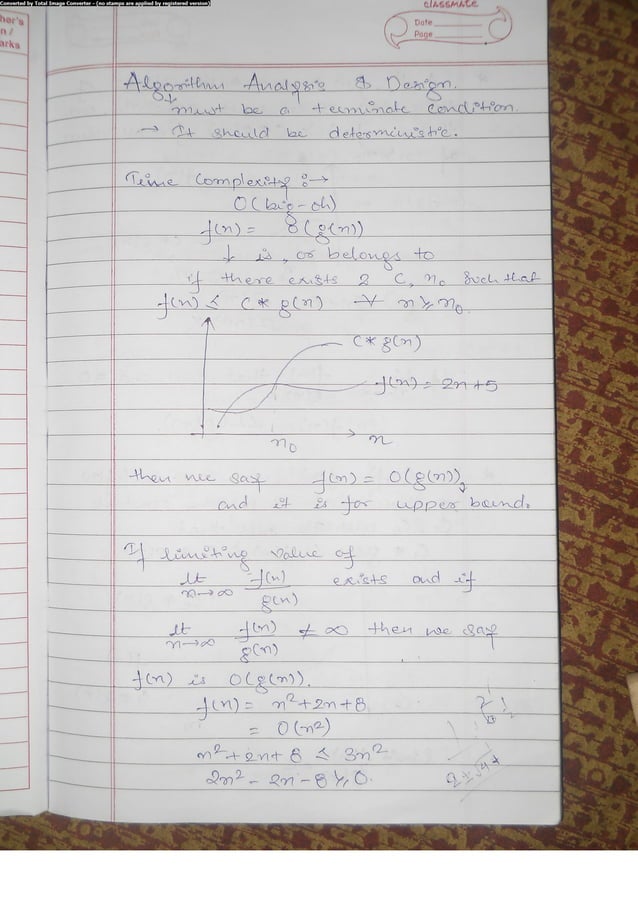 Converted by Total Image Converter - (no stamps are applied by registered version)
CLASSMATE
Date
Page
her's
n /
arks
Algorithm Analysis & Design.
↓ must be a terminate condition.
→ It should be deterministic.
Time Complexity :→
O(big-oh)
f(n) = O(g(n))
↓ is, or belongs to
if there exists 2 C, n₀ such that
f(n) ≤ C * g(n) ∀ n ≥ n₀.
C * g(n)
f(n) = 2n+5
n₀
n
then we say f(n) = O(g(n)),
and it is for upper bound.
If limiting value of
lt n→∞ f(n)/g(n) exists and if
lt n→∞ f(n)/g(n) ≠ ∞ then we say
f(n) is O(g(n)).
f(n) = n²+2n+8
= O(n²)
n²+2n+8 ≤ 3n²
2n² - 2n - 8 ≥ 0.